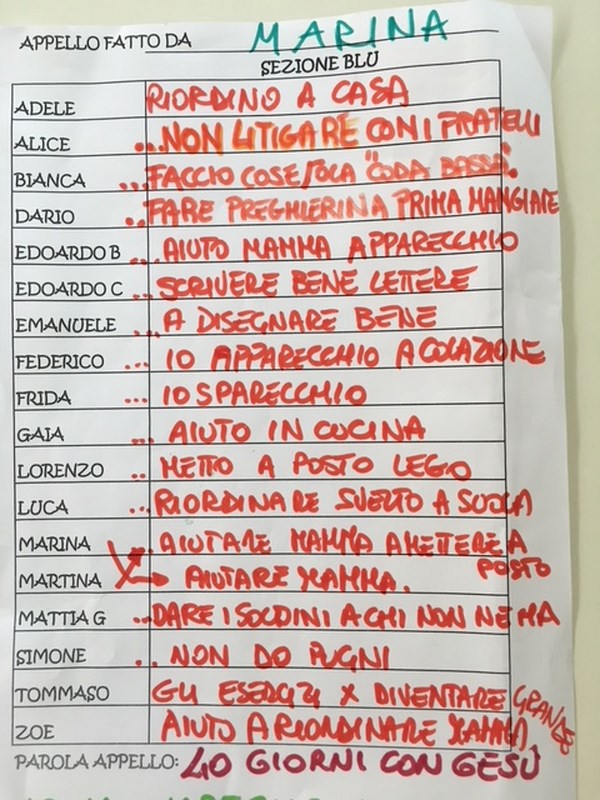 APPELLO FATTO DA MARINA
SEZIONE BLU
ADELE RIORDINO A CASA
ALICE ...NON LITIGARE CON I FRATELLI
BIANCA ...FACCIO COSE SOLA "CODA BASSA".
DARIO ...FARE PREGHIERINA PRIMA MANGIARE
EDOARDO B ...AIUTO MAMMA APPARECCHIO
EDOARDO C ...SCRIVERE BENE LETTERE
EMANUELE ...A DISEGNARE BENE
FEDERICO ... IO APPARECCHIO A COLAZIONE
FRIDA ... IO SPARECCHIO
GAIA ... AIUTO IN CUCINA
LORENZO .. METTO A POSTO LEGO
LUCA ...RIORDINARE SVELTO A SUOLA
MARINA .. AIUTARE MAMMA A METTERE A POSTO
MARTINA AIUTARE MAMMA.
MATTIA G ...DARE I SOLDINI A CHI NON NE HA
SIMONE .. NON DO PUGNI
TOMMASO GLI ESERCIZI X DIVENTARE GRANDE
ZOE AIUTO A RIORDINARE MAMMA
PAROLA APPELLO: 40 GIORNI CON GESÙ